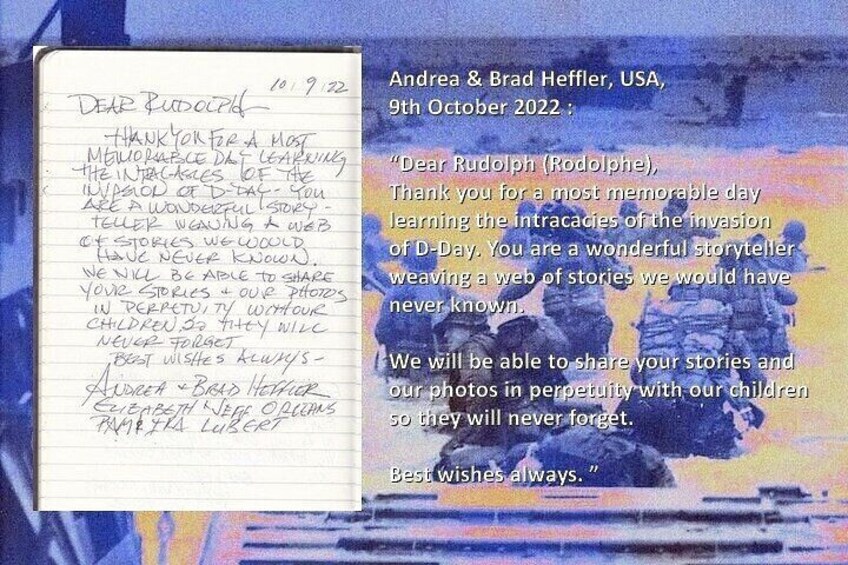 10/9/22
DEAR RUDOLPH
THANK YOU FOR A MOST
MEMORABLE DAY LEARNING
THE INTRACACIES OF THE
INVASION OF D-DAY - YOU
ARE A WONDERFUL STORY-
TELLER WEAVING A WEB
OF STORIES WE WOULD
HAVE NEVER KNOWN.
WE WILL BE ABLE TO SHARE
YOUR STORIES + OUR PHOTOS
IN PERPETUITY WITH OUR
CHILDREN SO THEY WILL
NEVER FORGET
BEST WISHES ALWAYS -
ANDREA + BRAD HEFFLER
ELIZABETH + JEFF ORLEANS
PAMELA LUBERT
Andrea & Brad Heffler, USA,
9th October 2022 :
“Dear Rudolph (Rodolphe),
Thank you for a most memorable day
learning the intracacies of the invasion
of D-Day. You are a wonderful storyteller
weaving a web of stories we would have
never known.
We will be able to share your stories and
our photos in perpetuity with our children
so they will never forget.
Best wishes always. ”